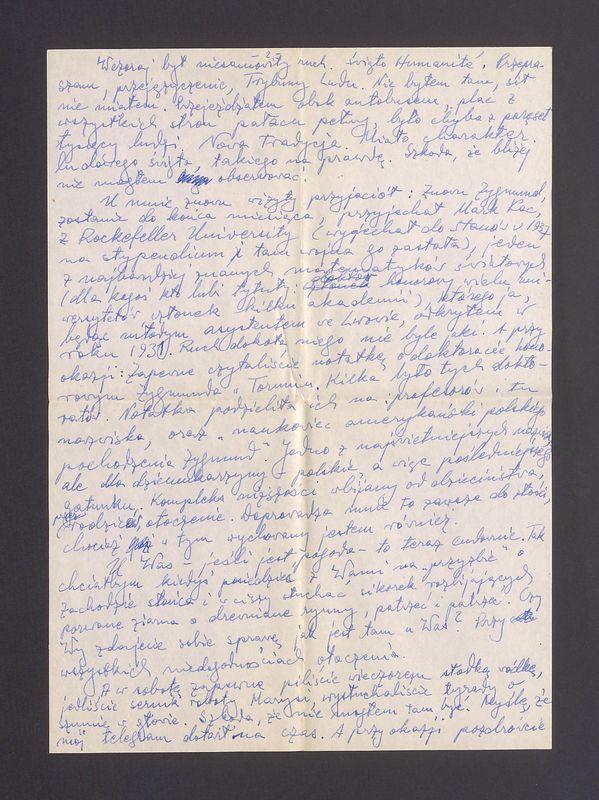 Wczoraj był niesamowity ruch. Święto Humanité. Przepra-
szam, przejęzyczenie, Trybuny Ludu. Nie byłem tam, sił
nie miałem. Przejeżdżałem obok autobusem, plac z
wszystkich stron pałacu pełny, było chyba z paręset
tysięcy ludzi. Nowa tradycja. Miało charakter
ludowego święta, takiego na prawdę. Szkoda, że bliżej
nie mogłem obserwować.
U mnie znowu wizyty przyjaciół: Znowu Zygmund,
zostanie do końca miesiąca, przyjechał Mark Kac,
z Rockefeller University (wyjechał do Stanów w 1937
na stypendium i tam wojna go zastała), jeden
z najbardziej znanych matematyków światowych
(dla kogoś kto lubi tytuły: doktor honorowy wielu uni-
wersytetów członek kilku akademii), którego ja,
będąc młodym asystentem we Lwowie, odkryłem w
roku 1931. Ruch dokoła niego nie byle jaki. A przy
okazji: Zapewne czytaliście notatkę o doktoracie hono-
rowym Zygmunda w Toruniu. Kilka było tych dokto-
ratów. Notatka podzieliła ich na profesorów i tu
nazwiska, oraz "naukowiec amerykański polskiego
pochodzenia Zygmund". Jedno z najświetniejszych nazwisk,
ale dla dziennikarzyny polskie, a więc pośledniejszego
gatunku. Kompleks niższości wbijany od dzieciństwa,
przez rodziców, otoczenie. Doprowadza mnie to zawsze do złości,
chociaż w tym wychowany jestem również.
U Was - jeśli jest pogoda - to teraz cudownie. Tak
chciałbym kiedyś posiedzieć z Wami na "przyzbie" o
zachodzie słońca i w ciszy słuchać sikorek rozbijających
porwane ziarna o drewniane rynny, patrzeć i patrzeć. Czy
Wy zdajecie sobie sprawę, jak jest tam u Was? Przy
wszystkich niedogodnościach otoczenia.
A w sobotę zapewne piliście wieczorem słodką wódkę,
jedliście sernik roboty Marysi, wysłuchaliście tyrady o
szumie w głowie. Szkoda, że nie mogłem tam być. Myślę, że
mój telegram dotarł na czas. A przy okazji pozdrówcie